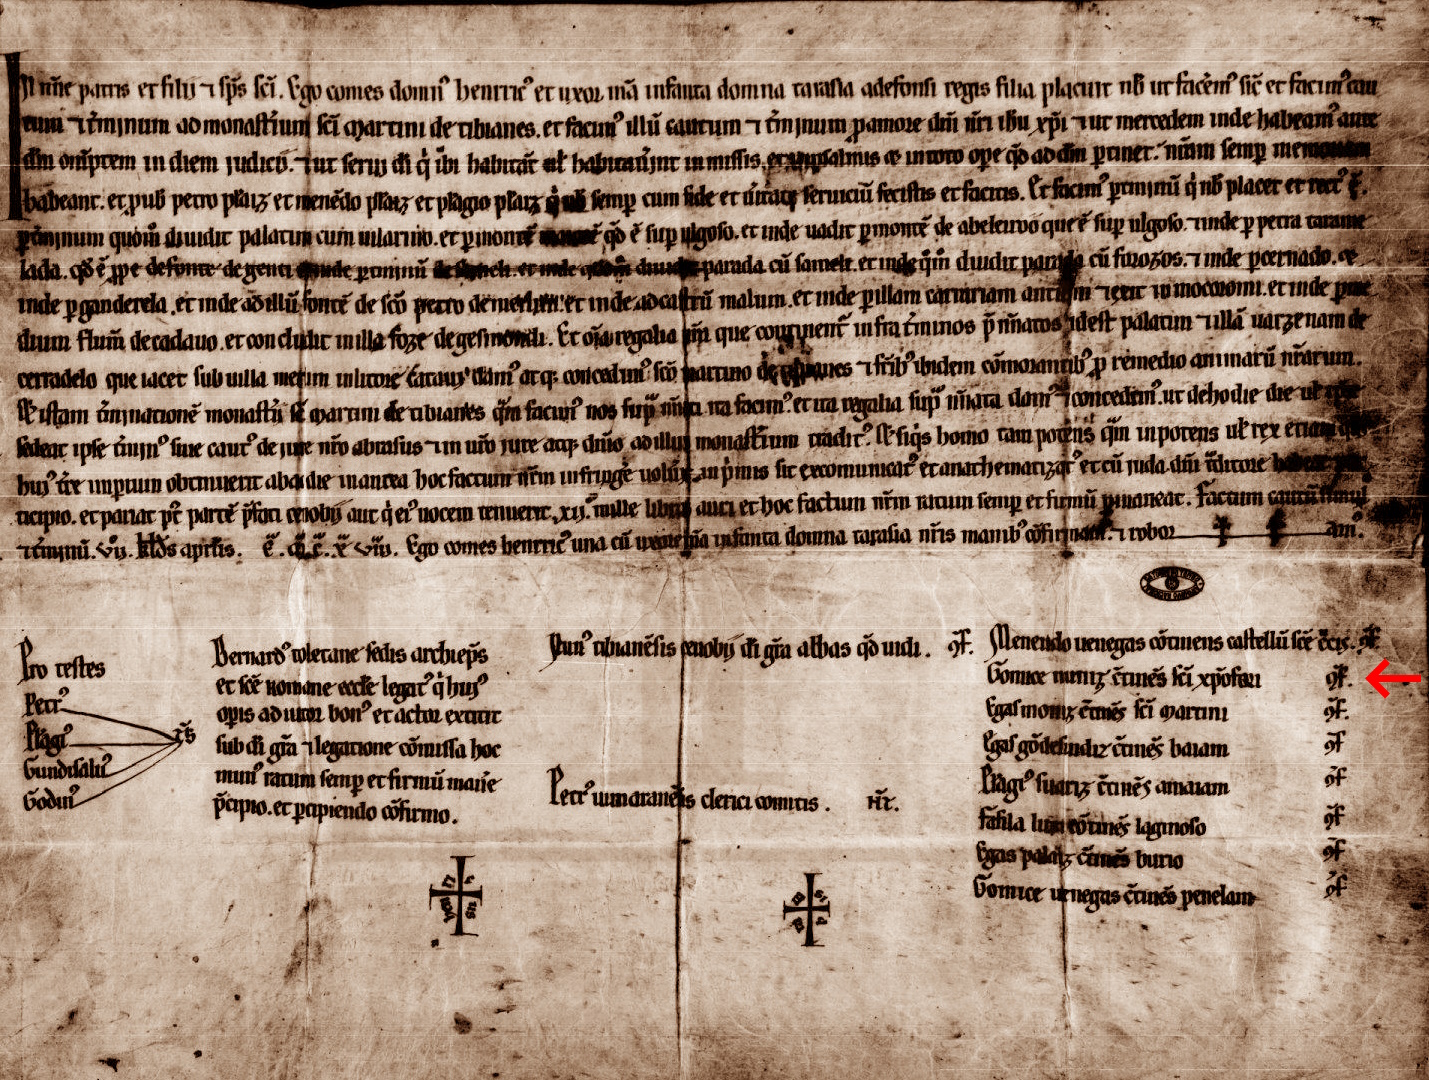 In nńe patris et filii ⁊ sp̃s sc̃i. Ego comes domnꝰ henricꝰ et uxor m̃a infanta domna tarasia adefonsi regis filia placuit nb̃ ut facem̃ꝰ sic̃ et facimꝰ cau
tum ⁊ t̃minum ad monast̃ium sc̃i Martini de tibianes. et facimꝰ illũ cautum ⁊ t̃minum ꝓ amore dñi nr̃i ihũ xp̃i ⁊ ut mercedem inde habeamꝰ ante
dm̃ om̃ptem in diem judicii. ⁊ ut serui di q̇ ibi habitãt uł habitau̾int in missis et in psalmis et in toto ope qd̃ ad dm̃ ꝑtinet. nr̃am semꝑ memoriam
habeant. et ꝓ uob̃ petro plaiz et menẽdo plaiz et plagio plaiz semꝑ cum fide et ũitate seruiciũ fecistis et facitis. Et facimꝰ ꝑ t̃minũ q̇ nb̃ placet et rectꝰ ẽ.
ꝑ t̃minum quom̃ diuidit palatium cum uilarino. et ꝑ montẽ qd̃ ẽ suꝑ ulgoso. et inde uadit ꝑ montẽ de abeleiroo que ẽ suꝑ ulgoso. ⁊ inde ꝑ petra tarame
lada. qd̃ ẽ ꝓpe de fonte de genti parada cũ samelt. et inde qm̃ diuidit parada cũ furozos. ⁊ inde ꝑ cernado. et
inde ꝑ ganderela. et inde ad illũ fontẽ de sc̃o petro de et inde ad castrũ malum. et inde ꝑ illam carrariam antiquam ⁊ exit in mocoromi. et inde ꝑ me
dium flum̃ de cadauo. et concludit in illa foze de gesmondi. Et om̃ia regalia que continent̃ infra t̃minos p̃nm̃atos idest palatium ⁊ illã uarzenam de
cerradelo que iacet sub uilla in litore Catauꝰ damꝰ atq; concedimꝰ sc̃o martino de tibianes ⁊ fr̃ibꝰ ibidem cõmorantibꝰ ꝓ remedio animarũ nr̃arum.
Sꝫ istam t̃minationẽ monast̃ii sc̃i Martini de tibianes qm̃ facimꝰ nos sup̃ nm̃ati ita facimꝰ. et ita regalia sup̃ nm̃ata damꝰ ⁊ concedimꝰ. ut de hodie die uł tp̃re
sedeat ipse t̃minꝰ siue cautꝰ de iure nr̃o abrasus ⁊ in ur̃o iure atq; dnĩo ad illud monast̃ium traditꝰ. Sꝫ siq̇s homo tam potens qm̃ inpotens uł rex etiam qui
hujꝰ t̃re imperium obtinuerit ab a die in antea hoc factum nr̃m infringe̾ uolũit in p̾mis sit excomunicatꝰ et anathematizatꝰ et cũ juda dm̃ t̾ditore habeat par
ticipio. et pariat pꝰt partẽ p̃fati cenobii aut q̇ eiꝰ uocem tenuerit .xij. mille libras auri et hoc factum nr̃m ratum semꝑ et firmũ ꝑmaneat. Factum cautũ firmitꝰ
⁊ t̃minũ. vii. kłds aprilis. Ẽ. Ego comes henricꝰ una cũ uxore m̃a infanta domna tarasia nr̃is manibꝰ cõfirmamꝰ ⁊ robor amꝰ.
Pro testes
Petrꝰ
Plagiꝰ
Gundisaluꝰ
Godinꝰ
ts̃
Bernardꝰ toletane sedis archiep̃s
et sc̃e romane eccłe legatꝰ q̇ hujꝰ
opis adiutor bonꝰ et actor extitit
sub di gr̃a ⁊ legatione cõmissa hoc
munꝰ ratum semꝑ et firmũ mane̾
p̃cipio. et ꝑcipiendo cõfirmo.
tibianẽsis cenobii di gr̃a abbas qd̃ uidi. ꝯf̃.
Petrꝰ uimaranẽsis clerici comitis. nt̃.
Menendo uenegas cõtinens castellũ sc̃e c̾cis. ꝯf̃
Gomice nuniz c̃tinẽs sc̃i xp̃ofori ꝯf̃.
Egas moniz c̃tinẽs sc̃i Martini ꝯf̃.
Egas gõdesindiz c̃tinẽs baiam ꝯf̃
Plagiꝰ suariz c̃tinẽs amaiam ꝯf̃
Fafila luciz cõtinẽs laginoso ꝯf̃
Egas palaiz c̃tinẽs burio ꝯf̃
Gomice uenegas c̃tinẽs penelam ꝯf̃